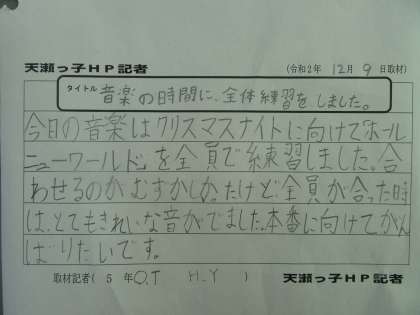 天瀬っ子HP記者
(令和2年 12月 9日取材)
タイトル 音楽の時間に、全体練習をしました。
今日の音楽はクリスマスナイトに向けて「ホール
ニューワールド」を全員で練習しました。合
わせるのがむずかしかったけど、全員が合った時
は、とてもきれいな音がでました。本番に向けてがん
ばりたいです。
取材記者( 5 年 O.T H.Y )
天瀬っ子HP記者